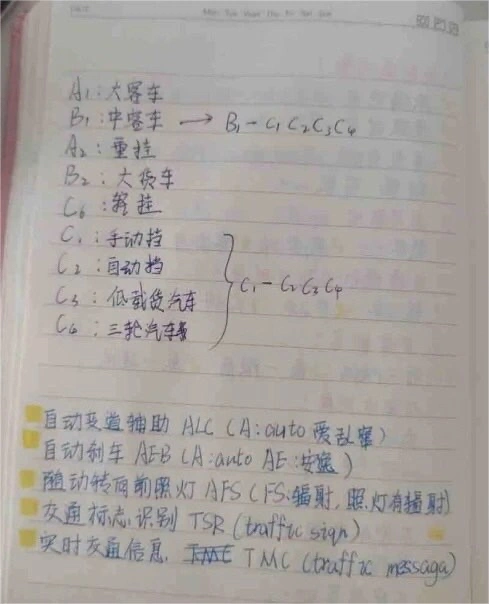 DATE
A1:大客车
B1:中客车 → B1-C1C2C3C4
A2:重挂
B2:大货车
C6:轻挂
C1:手动挡
C2:自动挡
C3:低载货汽车
C4:三轮汽车
C1-C2C3C4
自动变道辅助 ALC (A:auto 爱乱窜)
自动刹车 AEB (A:auto AE:安逸)
随动转向前照灯 AFS (FS:辐射,照灯有辐射)
交通标志识别 TSR (traffic sign)
实时交通信息 TMC TMC (traffic messaga)